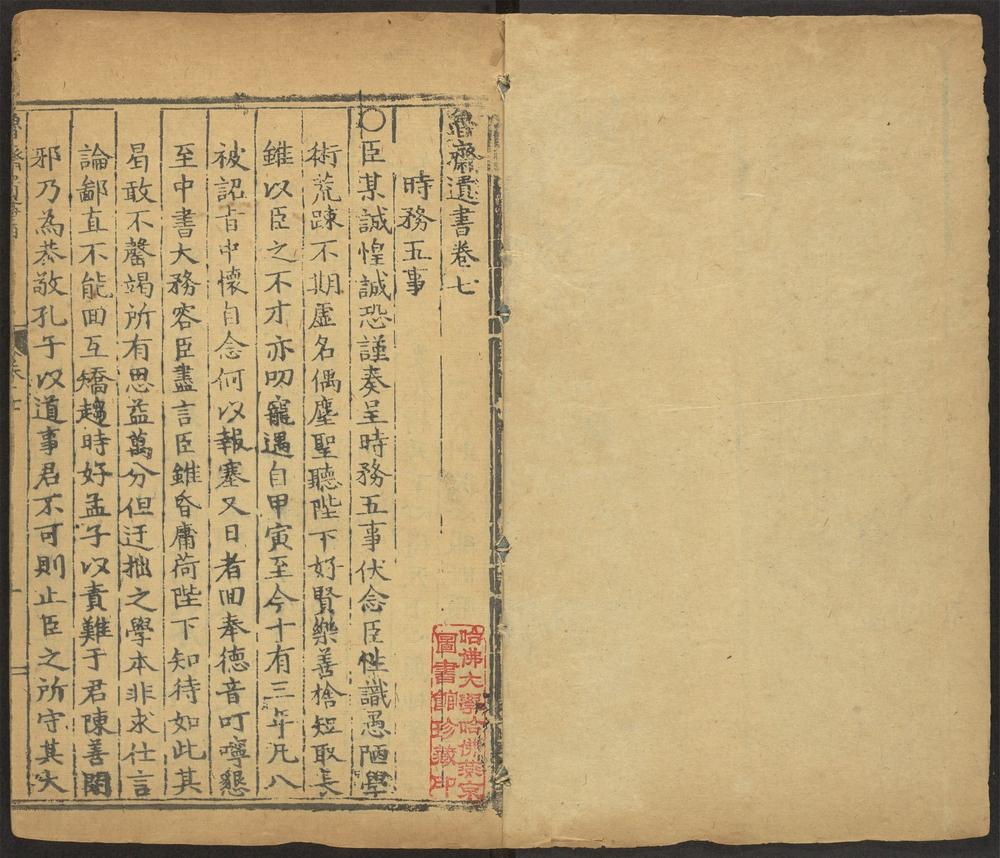 魯齋遺書卷七
時務五事
○臣某誠惶誠恐謹奏呈時務五事伏念臣性識愚陋學
術荒踈不期虛名偶塵聖聽陛下好賢樂善捨短取長
雖以臣之不才亦叨寵遇自甲寅至今十有三年凡八
被詔旨中懷自念何以報塞又日者面奉德音叮嚀懇
至中書大務容臣盡言臣雖昏庸荷陛下知待如此其
曷敢不罄竭所有思益萬分但迂拙之學本非求仕言
論鄙直不能回互矯趨時好孟子以責難于君陳善閉
邪乃為恭敬孔子以道事君不可則止臣之所守其大
魯齋遺書
卷七
哈佛大學哈佛燕京
圖書館珍藏印